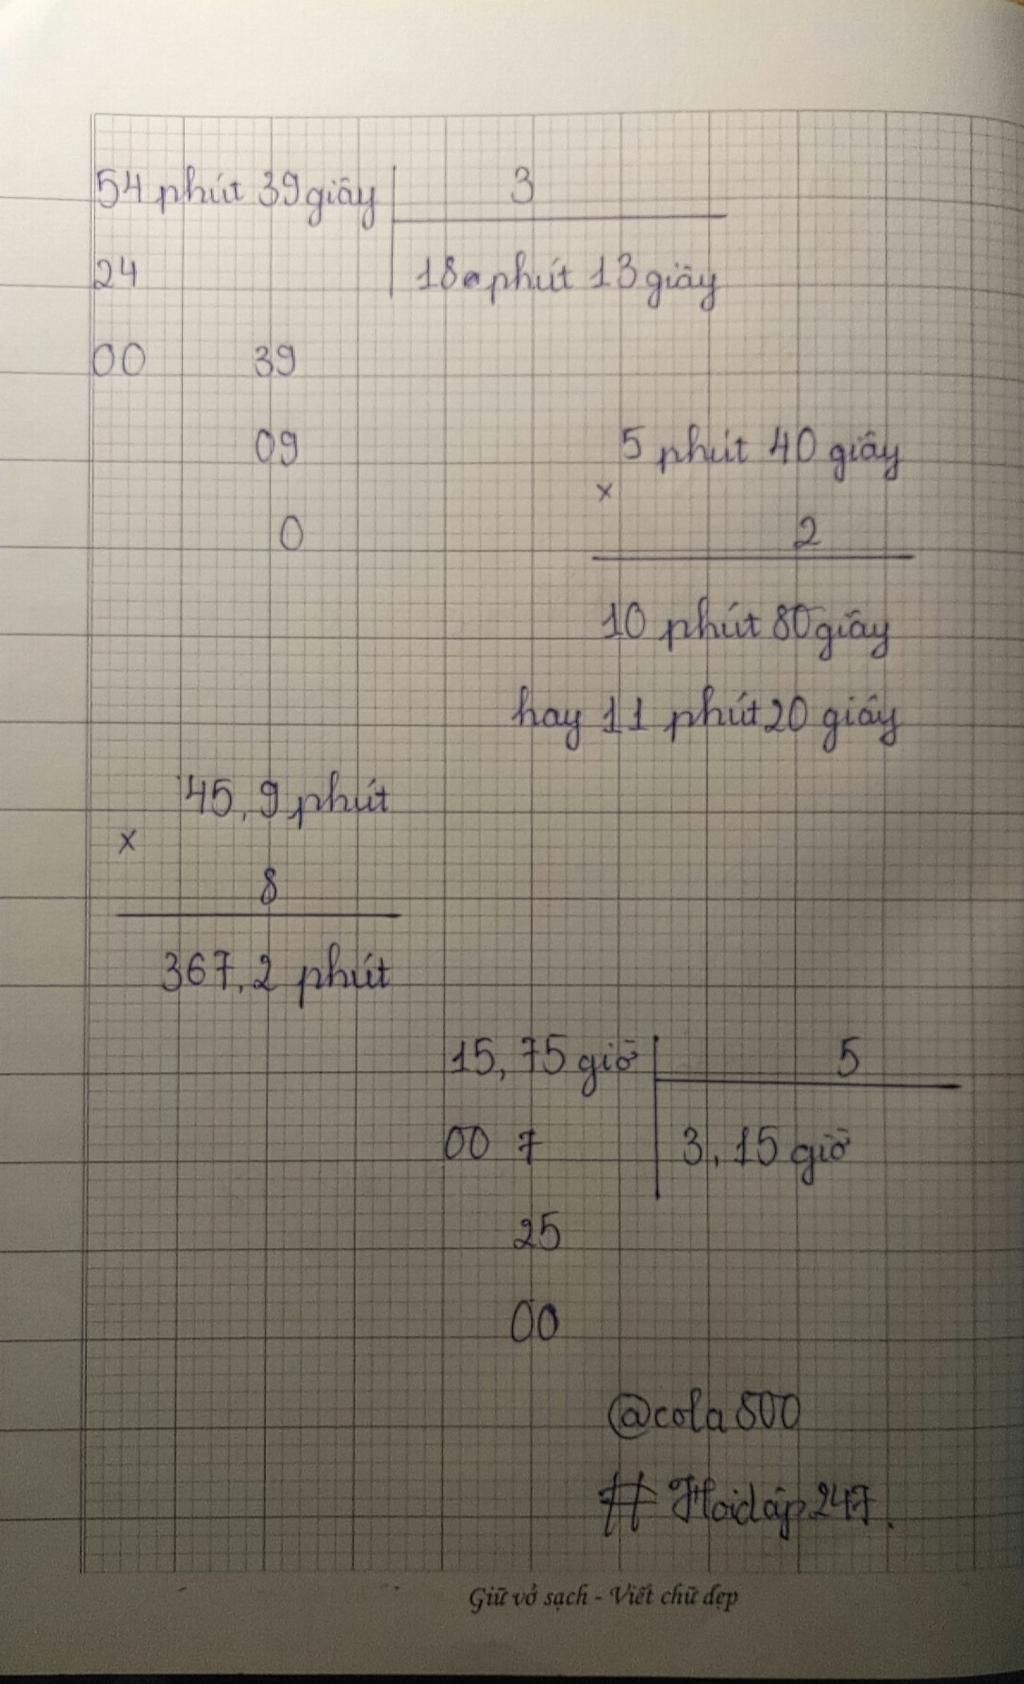 54 phút 39 giây 3
24 18 phút 13 giây
00 39
09
0
5 phút 40 giây
x
2
10 phút 80 giây
hay 11 phút 20 giây
45,9 phút
x
8
367,2 phút
15,75 giờ 5
00 7 3,15 giờ
25
00
@cola500
# Hoidap247.
Giữ vở sạch - Viết chữ đẹp